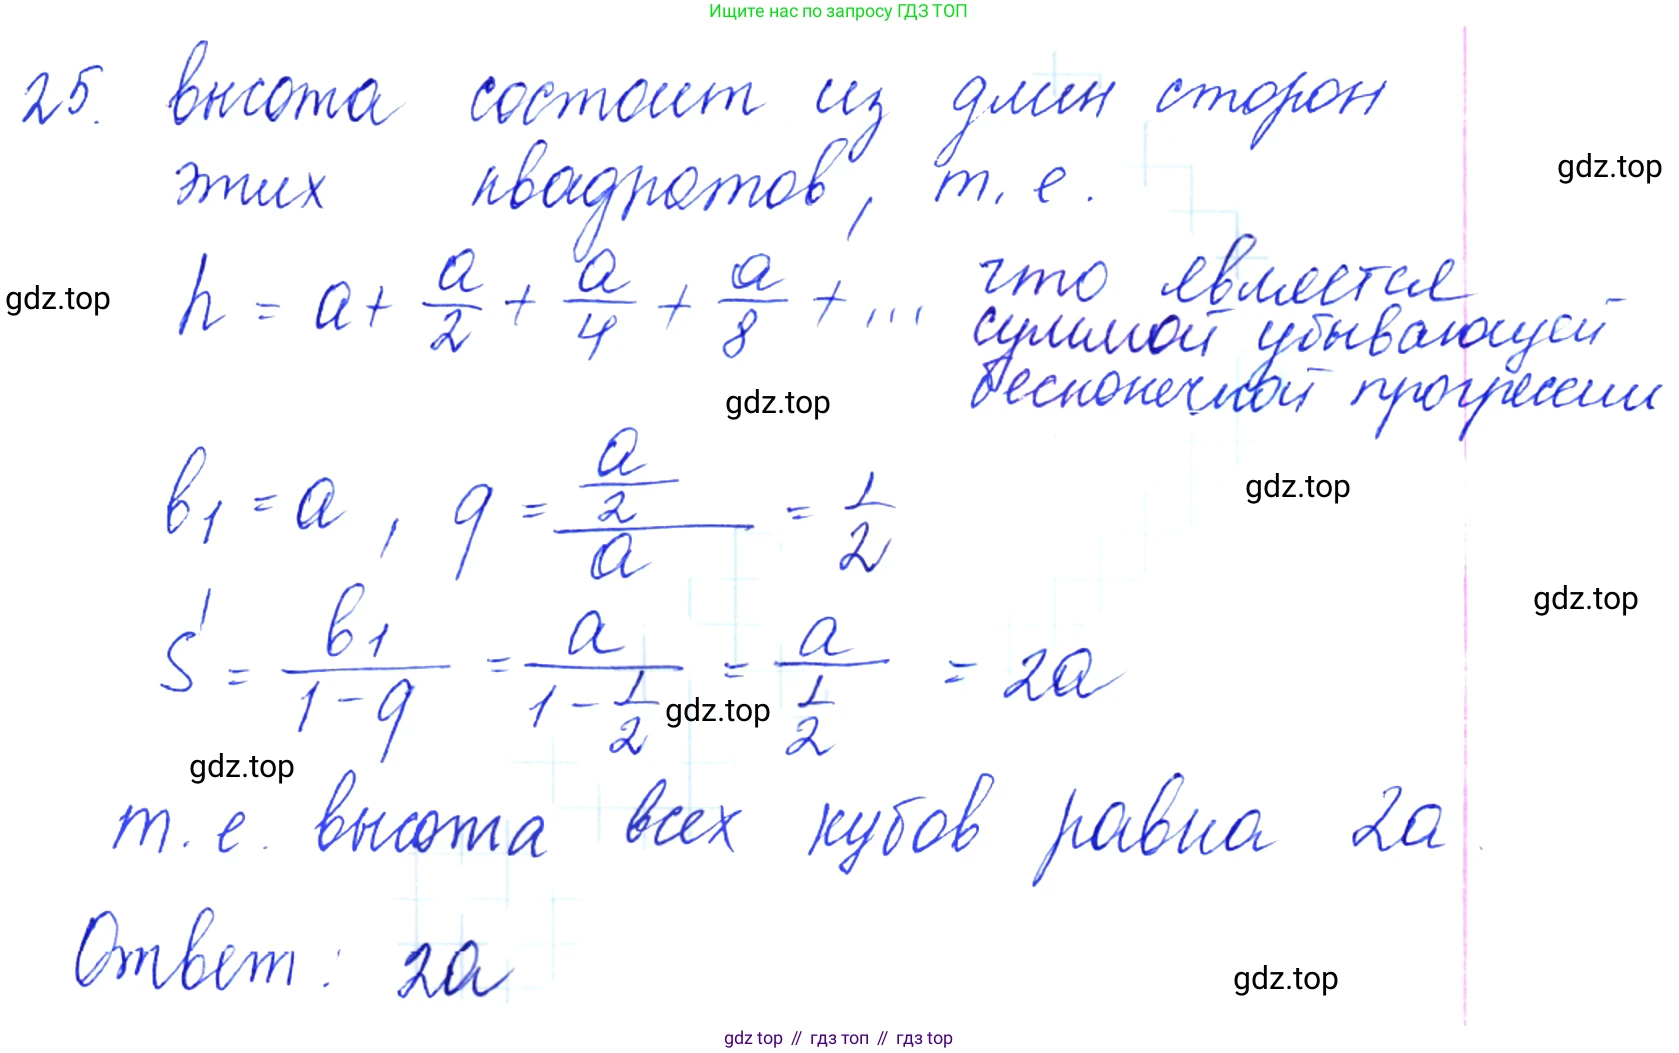 Ищите нас по запросу ГДЗ ТОП
25. высота состоит из длин сторон
gdz.top
этих квадратов, т. е.
gdz.top
h = a + a/2 + a/4 + a/8 + ... что является
суммой убывающей
бесконечной прогрессии
gdz.top
gdz.top
b₁ = a, q = (a/2)/a = 1/2
gdz.top
S = b₁/(1-q) = a/(1-1/2) = a/(1/2) = 2a
gdz.top
gdz.top
т. е. высота всех кубов равна 2a.
Ответ: 2a
gdz.top
gdz top // гдз топ // gdz top